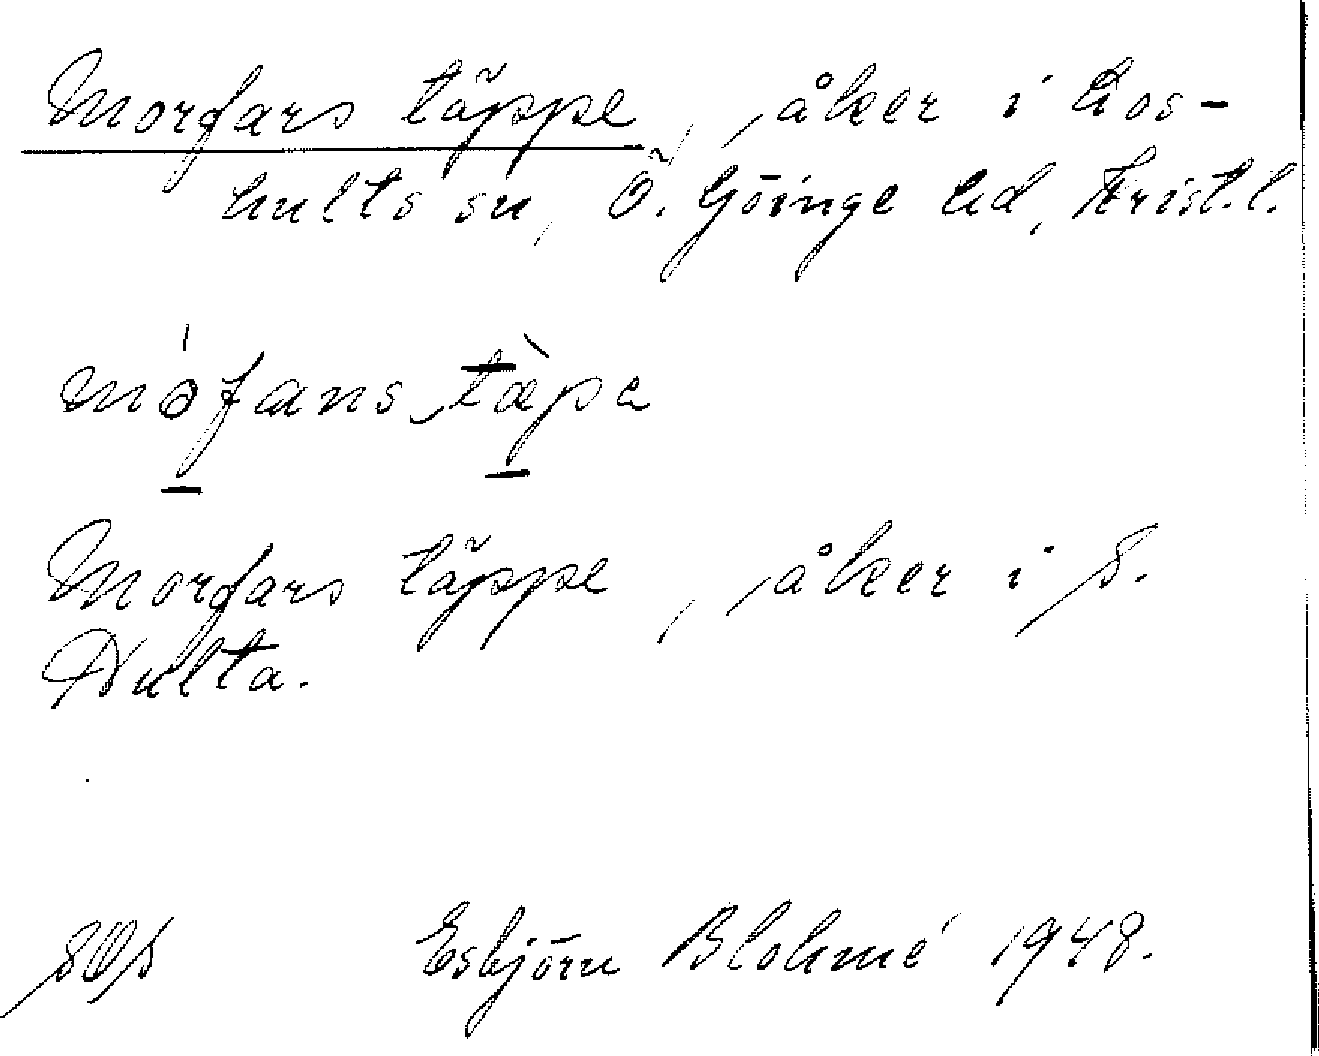 Morfars täppe, åker i Loshults sn, Ö. Göinge hd, Krist.l.
mófans tæ̀pa
Morfars täppe, åker i S.
Hulta.
Esbjörn Blohmé 1948.